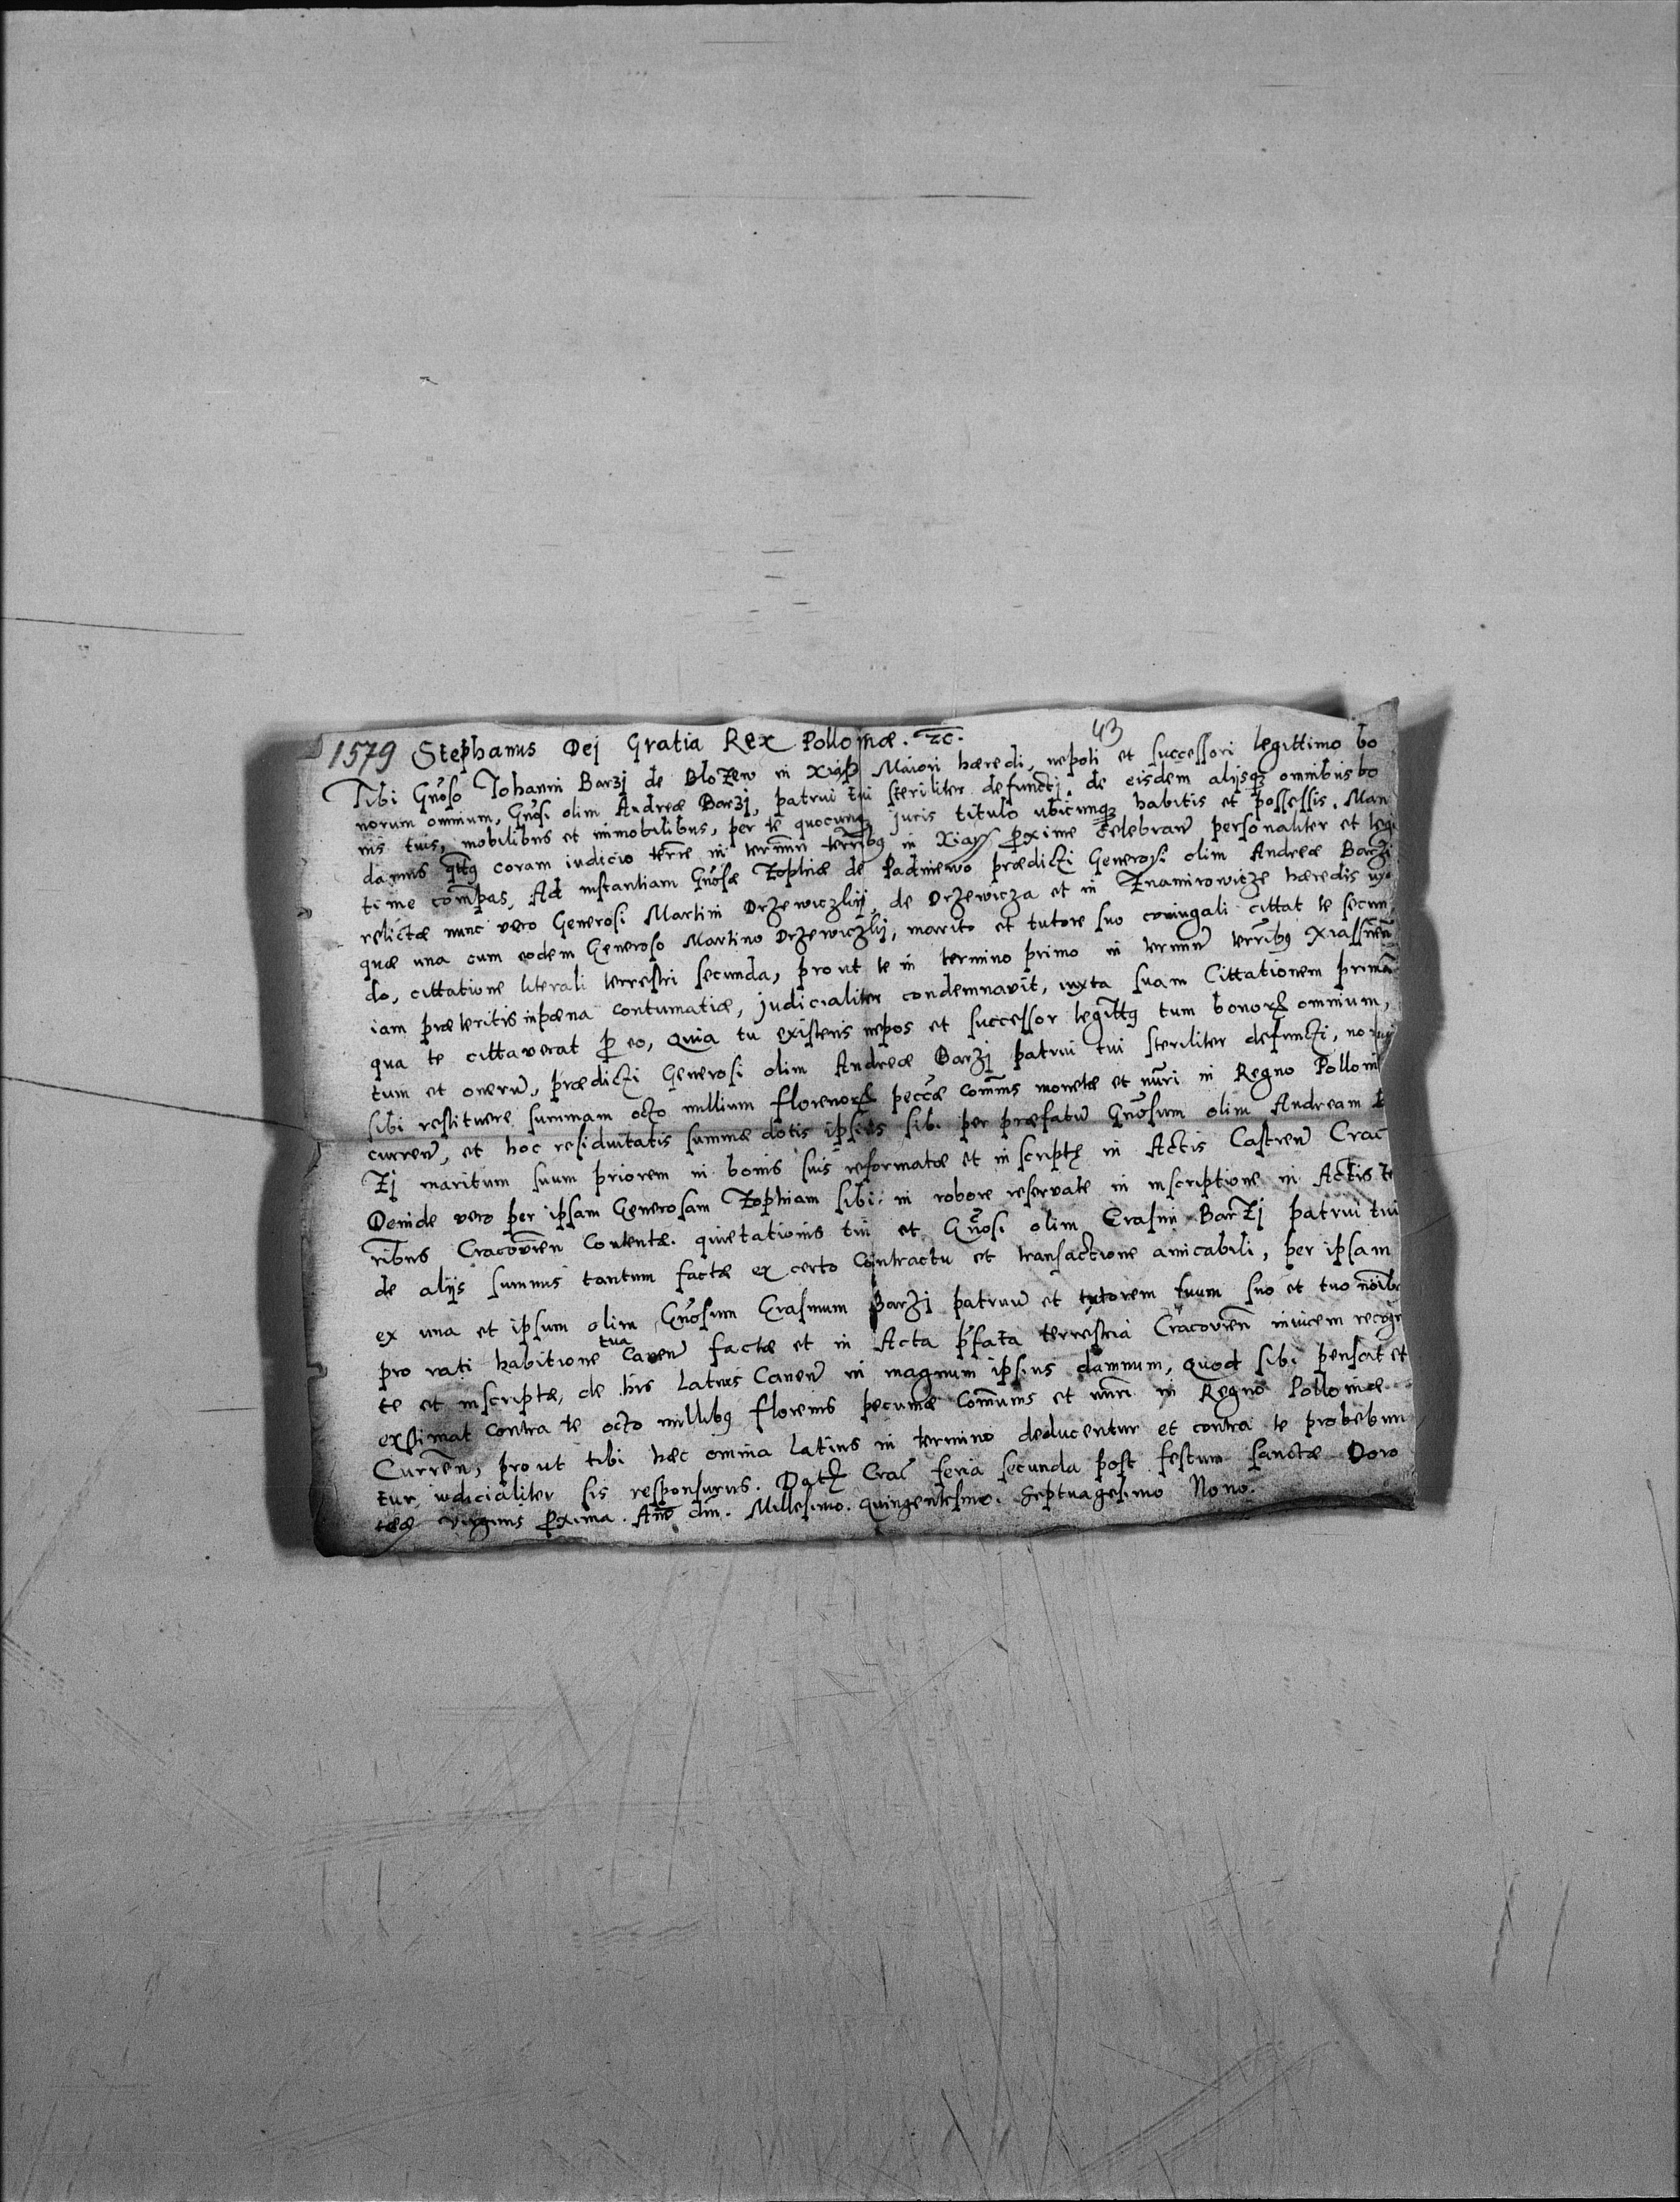 43
1579 Stephanus Dej Gratia Rex Polloniæ. Zc.
Tibi Gnoso Iohanni Barzj de Blozew in Xiąsz Maiori hæredi, nepoti et successori legittimo bo
norum omnium, Gnosi olim Andreæ Barzj, patrui tui steriliter defuncti, de eisdem alijsq; omnibus bo
nis tuis, mobilibus et immobilibus, per te quocunq; juris titulo ubicunq; habitis et possessis. Man
damus coram iudicio terre in termin terribus in Xiasz pxime celebran personaliter et legi
time compas, Ad instantiam Gnosæ Zophiæ de Padniewo prædicti Generosi olim Andreæ Barzj
relictæ nunc vero Generosi Martini Drzewiczkij, de Drzewicza et in Znamirowicze hæredis
quæ una cum eodem Generoso Martino Drzewiczkij, marito et tutore suo coniugali cittat te secun
do, cittatione literali terrestri secunda, prout te in termino primo in termin terribus Xiassnen
iam præteritis in pæna contumatiæ, judicialiter condemnavit, iuxta suam Cittationem primā
qua te cittaverat p eo, Quia tu existens nepos et successor legittus tum bonorum omnium,
tum et onerū, prædicti Generosi olim Andreæ Barzj patrui tui steriliter defuncti,
sibi restituere summam octo millium florenorum peccæ comms monetæ et nuri in Regno Polloni
curren, et hoc residuitatis summæ dotis ipsius sibi per præfatū Gnosum olim Andream
Zj maritum suum priorem in bonis suis reformatæ et inscriptæ in Actis Castren Crac
Deinde vero per ipsam Generosam Zophiam sibi in robore reservatæ in inscriptione in Actis te
rribus Cracovien contentæ. quietationis tui et Gnosi olim Erasmi Barzj patrui tui
de alijs summis tantum factæ ex certo contractu et transactione amicabili, per ipsam
ex una et ipsum olim Gnosum Erasmum Barzj patruū et tutorem tuum suo et tuo noibus
pro rati habitione tua caven factæ et in Acta pfata terrestria Cracovien invicem recogn
te et inscriptæ, de his latius Canen in magnum ipsius damnum, quod sibi pensat et
extimat contra te octo millibus florenis pecuniæ communis et nuri in Regno Polloniæ
Curren, prout tibi hæc omnia latius in termino deducentur et contra te probabun
tur, iudicialiter sis responsurus. Datum Crac feria secunda post festum sanctæ Doro
teæ virginis pxima. Anno dni. Millesimo. quingentesimo. Septuagesimo Nono.